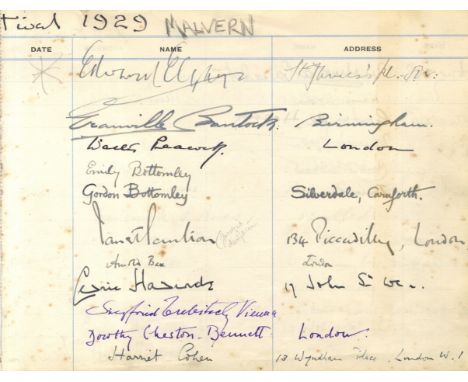 tival 1929 MALVERN
DATE NAME ADDRESS
Edward Elgar St James's Pl. SW.
Granville Bantock. Birmingham.
Peacock. London
Emily Bottomley
Gordon Bottomley Silverdale, Carnforth.
134 Piccadilly, London
London
Cedric Hardwicke 17 John St WC1.
Siegfried Trebitsch Vienna
Dorothy Cheston-Bennett London.
Harriet Cohen 13 Wyndham Place, London W.1